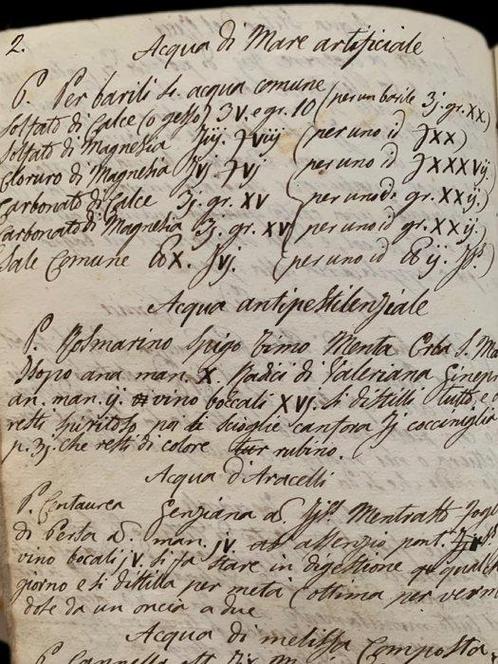 2.
Acqua di Mare artificiale
P. Per barili iv. acqua comune
Solfato di Calce (o gesso) ʒv. e gr. 10 (per un barile ʒj. gr. XX.)
Solfato di Magnesia ℥iij. ʒviij (per uno id ʒXX)
Cloruro di Magnesia ℥vj ʒvj (per uno id ʒXXXVij.
Carbonato di Calce ʒj. gr. XV (per uno id. gr. XXij.)
Carbonato di Magnesia ʒj. gr. XV (per uno id gr. XXij.)
Sale Comune ℔X. ℥vj. (per uno id ℔ij. ℥)
Acqua antipestilenziale
P. Rosmarino Spigo Timo Menta Erba S. Ma
Isopo ana man. X. Radici di Valeriana Ginep
an. man. ij. vino boccali XVj. si distilli tutto e
resti spiritoso poi le scioglie canfora ℥j cocciniglia
p. ʒj. che resti di colore rubino.
Acqua d'Aracelli
P. Centaurea Genziana Mentrasto
di Persa man. jV. assenzio pont.
vino bocali jV. si fa stare in digestione qualche
giorno e si distilla per metà (ottima per verm
dose da un oncia a due
Acqua di melissa Composta
P. Cannella